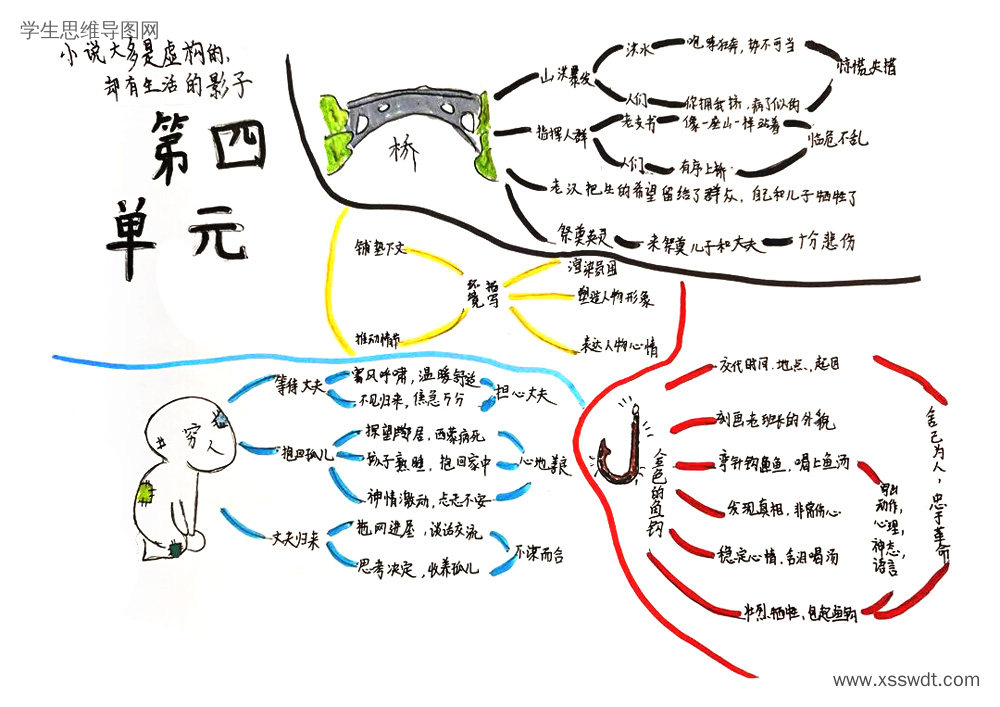 学生思维导图网
小说大多是虚构的,
却有生活的影子
第四
单元
桥
山洪暴发
洪水
咆哮狂奔,势不可当
人们
你拥我挤,疯了似的
惊慌失措
指挥人群
老支书
像一座山一样站着
人们
有序上桥
临危不乱
老汉把生的希望留给了群众,自己和儿子牺牲了
祭奠英灵
来祭奠儿子和丈夫
十分悲伤
环境描写
铺垫下文
推动情节
渲染氛围
塑造人物形象
表达人物心情
穷人
等待丈夫
寒风呼啸,温暖舒适
不见归来,焦急万分
担心丈夫
抱回孤儿
探望邻居,西蒙病死
孩子熟睡,抱回家中
神情激动,忐忑不安
心地善良
丈夫归来
拖网进屋,谈话交流
思考决定,收养孤儿
不谋而合
金色的鱼钩
交代时间、地点、起因
刻画老班长的外貌
弯针钩鱼,喝上鱼汤
发现真相,非常伤心
稳定心情,含泪喝汤
壮烈牺牲,包起鱼钩
动作,
心理,
神态,
语言
舍己为人,忠于革命
www.xsswdt.com